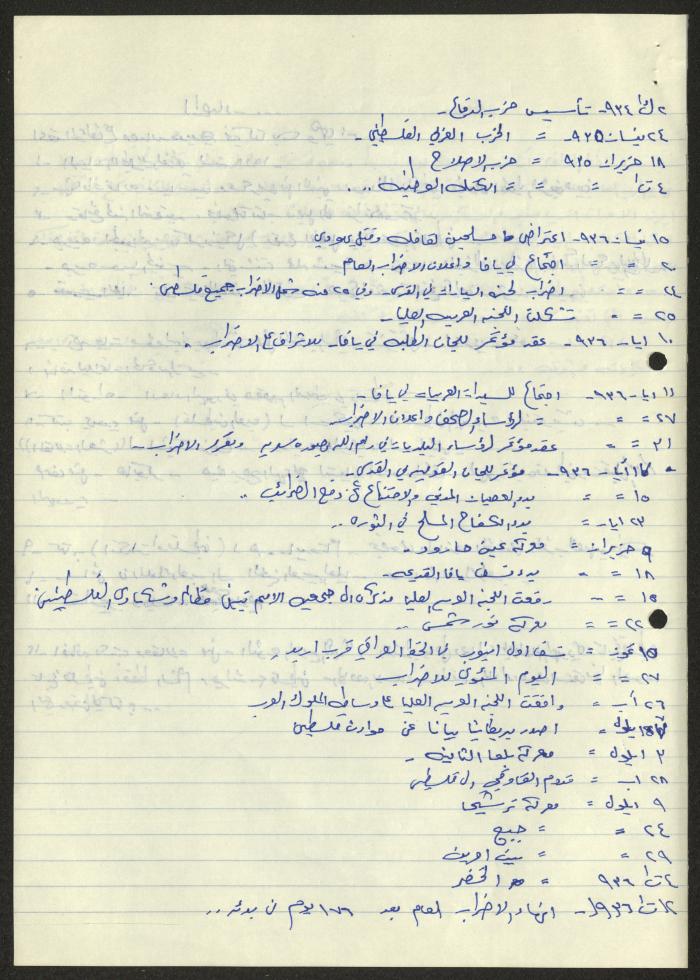 ٢ ك٢ ٩٣٤- تأسيس حزب الدفاع-
٢٤ نيسان ٩٣٥- = الحزب العربي الفلسطيني-
١٨ حزيران ٩٣٥ = حزب الاصلاح
٤ ت١ = = = الكتلة الوطنية ..
١٥ نيسان ٩٣٦- اعتراض مسلحين لقافلة وقتل يهودي
٢٠ = = اجتماع في يافا واعلان الاضراب العام
٢٤ = = اضراب لجنة السيارات في القدس- وفي ٢٥ منه شمل الاضراب جميع فلسطين.
٢٥ = = تشكلت اللجنة العربية العليا-
١٠ ايار- ٩٣٦- عقد مؤتمر للجان الطلبة في يافا- للاشراف على الاضراب .
١١ ايار- ٩٣٦- اجتماع للسيدات العربيات في يافا-
٢٧ = = = لرؤساء الصحف واعلان الاضراب
٣١ = = عقد مؤتمر لرؤساء البلديات في رام الله بصورة سرية وتقرر الاضراب-
ايار- ٩٣٦- مؤتمر للجان القومية في القدس-
١٥ = = بدء العصيان المدني والامتناع عن دفع الضرائب ..
٢٣ ايار- = بدء الكفاح المسلح في الثورة ..
٩ حزيران = معركة عين حارود
١٨ = = بدء نسف يافا القديمة-
١٥ = - رفعت اللجنة العربية العليا مذكرة الى جمعية الامم تبين مظالم وشكاوى الفلسطينيين
٢٢ = = معركة نور شمس ..
١٥ تموز = نسف اول انبوب في الخط العراقي قرب اربد,
٢٧ = = اليوم المئوي للاضراب
٢٦ آب = وافقت اللجنة العربية العليا على وساطة الملوك العرب
ايلول = اصدر بريطانيا بيانا عن حوادث فلسطين
٣ ايلول = معركة بلعا الثانية -
٢٨ اب = قدوم القاوقجي الى فلسطين
٩ ايلول = معركة ترشيحا
٢٤ = = جبع
٢٩ = = بيت امرين
٤ ت١ ٩٣٦ = الخضر
١٢ ت١ ٩٣٦- انهاء الاضراب العام بعد ١٧٦ يوم من بدئه ..